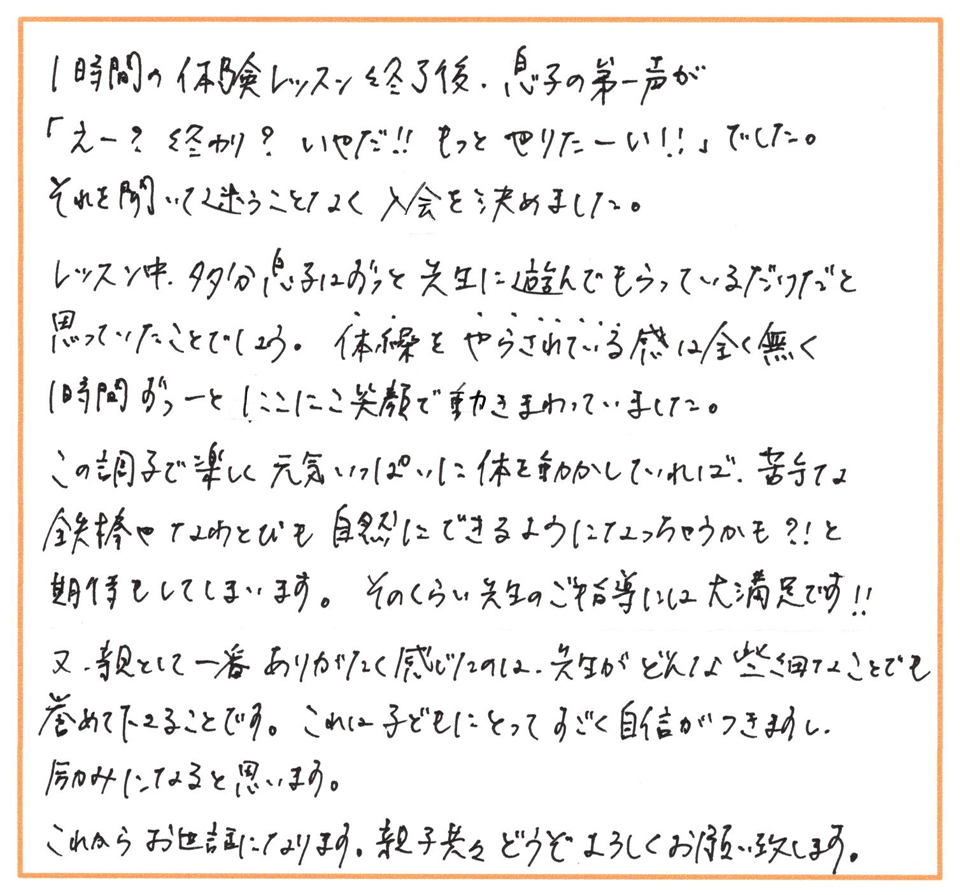 1時間の体験レッスン終了後、息子の第一声が
「えー？終わり？いやだ!!もっとやりたーい!!」でした。
それを聞いて迷うことなく入会を決めました。
レッスン中、多分息子はずっと先生に遊んでもらっているだけだと
思っていたことでしょう。体操をやらされている感は全く無く
1時間ずっーとにこにこ笑顔で動きまわっていました。
この調子で楽しく元気いっぱいに体を動かしていれば、苦手な
鉄棒やなわとびも自然にできるようになっちゃうかも?!と
期待もしてしまいます。そのくらい先生のご指導には大満足です!!
又、親として一番ありがたく感じたのは、先生がどんな些細なことでも
誉めて下さることです。これは子どもにとってすごく自信がつきますし、
励みになると思います。
これからお世話になります。親子共々どうぞよろしくお願い致します。